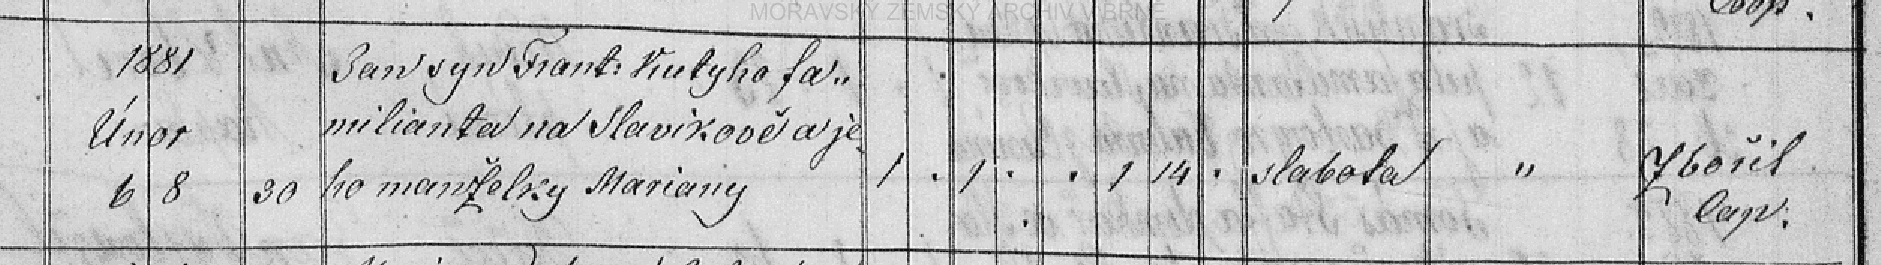 MORAVSKÝ ZEMSKÝ ARCHIV V BRNĚ
Coop.
1881 Jan syn Frant: Kutyho fa„
Únor milianta na Slavíkově a je„
6 8 30 ho manželky Mariany 1 . 1 . . 1 14 . slabota " Zbořil
Cap.